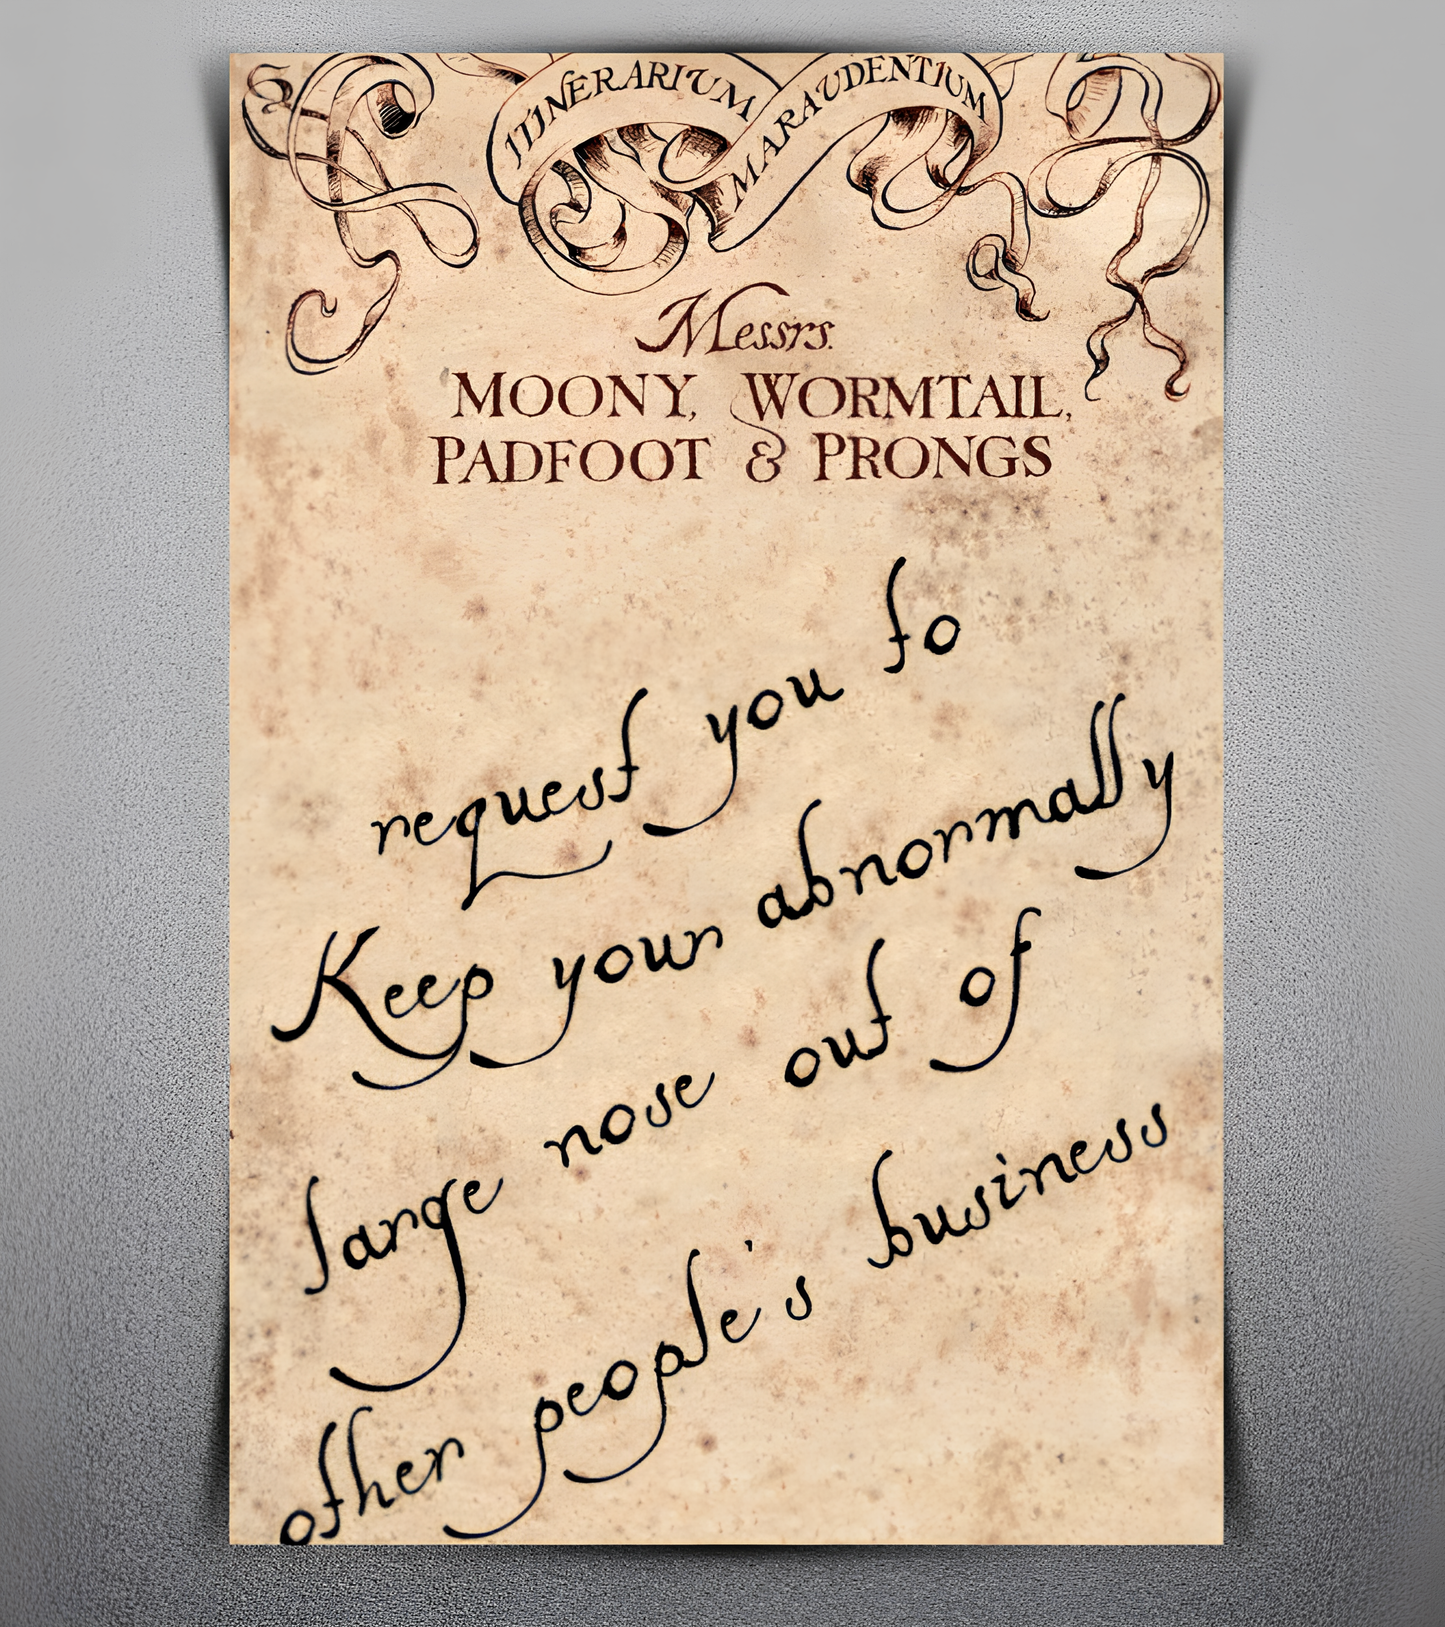 ITINERARIUM MARAUDENTIUM
Messrs.
MOONY, WORMTAIL,
PADFOOT & PRONGS
request you to
Keep your abnormally
large nose out of
other people's business